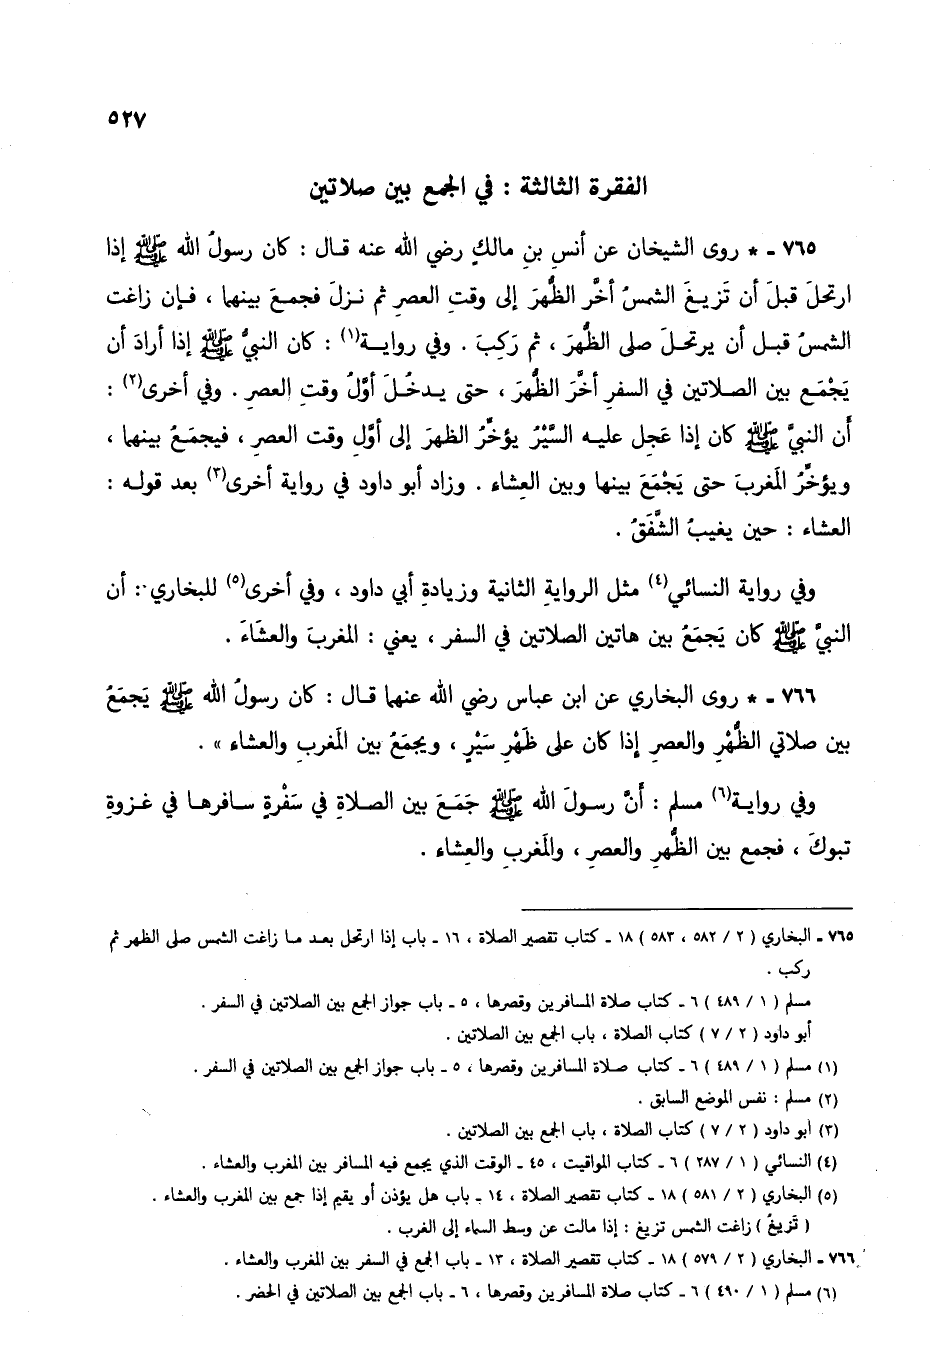 ٥٢٧
الفقرة الثالثة : في الجمع بين صلاتين
٧٦٥ - * روى الشيخان عن أنسِ بنِ مالكٍ رضي الله عنه قـال : كان رسولُ الله ﷺ إذا
ارتحلَ قبلَ أن تَزيغَ الشمسُ أخَّر الظُّهرَ إلى وقتِ العصرِ ثم نزلَ فجمعَ بينهما ، فـإن زاغت
الشمسُ قبـل أن يرتحـلَ صلى الظُّهرَ ، ثم رَكِبَ . وفي روايـة(١) : كان النبيُّ ﷺ إذا أرادَ أن
يَجْمَع بين الصـلاتين في السفرِ أخَّرَ الظُّهرَ ، حتى يـدخُـلَ أوَّلُ وقتِ العصرِ . وفي أخرى(٢) :
أن النبيَّ ﷺ كان إذا عَجِل عليـه السَّيْرُ يؤخِّرُ الظهرَ إلى أوَّلِ وقت العصرِ ، فيجمَعُ بينهما ،
ويؤخِّرُ المغربَ حتى يَجْمَعَ بينها وبين العِشاء . وزاد أبو داود في رواية أخرى(٣) بعد قولـه :
العشاء : حين يغيبُ الشَّفَقُ .
وفي رواية النسائي(٤) مثل الروايةِ الثانية وزيادةِ أبي داود ، وفي أخرى(٥) للبخاري : أن
النبيَّ ﷺ كان يَجمَعُ بين هاتين الصلاتين في السفر ، يعني : المغربَ والعشَاءَ .
٧٦٦ - * روى البخاري عن ابن عباس رضي الله عنهما قـال : كان رسولُ الله ﷺ يَجمَعُ
بين صلاتي الظُّهْرِ والعصرِ إذا كان على ظَهْرِ سَيْرٍ ، ويجمَعُ بين المَغربِ والعشاء » .
وفي روايـة(٦) مسلم : أنَّ رسولَ الله ﷺ جَمَعَ بين الصـلاةِ في سَفْرةٍ سـافرهـا في غـزوةِ
تبوكَ ، فجمع بين الظُّهرِ والعصرِ ، والمَغربِ والعِشاء .
٧٦٥ - البخاري ( ٢ / ٥٨٢ ، ٥٨٣ ) ١٨ - كتاب تقصير الصلاة ، ١٦ - باب إذا ارتحل بعـد مـا زاغت الشمس صلى الظهر ثم
ركب .
مسلم ( ١ / ٤٨٩ ) ٦ - كتاب صلاة المسافرين وقصرها ، ٥ - باب جواز الجمع بين الصلاتين في السفر .
أبو داود ( ٢ / ٧ ) كتاب الصلاة ، باب الجمع بين الصلاتين .
(١) مسلم ( ١ / ٤٨٩ ) ٦ - كتاب صـلاة المسافرين وقصرها ، ٥ - باب جواز الجمع بين الصلاتين في السفر .
(٢) مسلم : نفس الموضع السابق .
(٣) أبو داود ( ٢ / ٧ ) كتاب الصلاة ، باب الجمع بين الصلاتين .
(٤) النسائي ( ١ / ٢٨٧ ) ٦ - كتاب المواقيت ، ٤٥ - الوقت الذي يجمع فيه المسافر بين المغرب والعشاء .
(٥) البخاري ( ٢ / ٥٨١ ) ١٨ - كتاب تقصير الصلاة ، ١٤ - باب هل يؤذن أو يقيم إذا جمع بين المغرب والعشاء .
( تَزيغُ ) زاغت الشمس تزيغ : إذا مالت عن وسط السماء إلى الغرب .
٧٦٦ - البخاري ( ٢ / ٥٧٩ ) ١٨ - كتاب تقصير الصلاة ، ١٣ - باب الجمع في السفر بين المغرب والعشاء .
(٦) مسلم ( ١ / ٤٩٠ ) ٦ - كتاب صلاة المسافرين وقصرها ، ٦ - باب الجمع بين الصلاتين في الحضر .